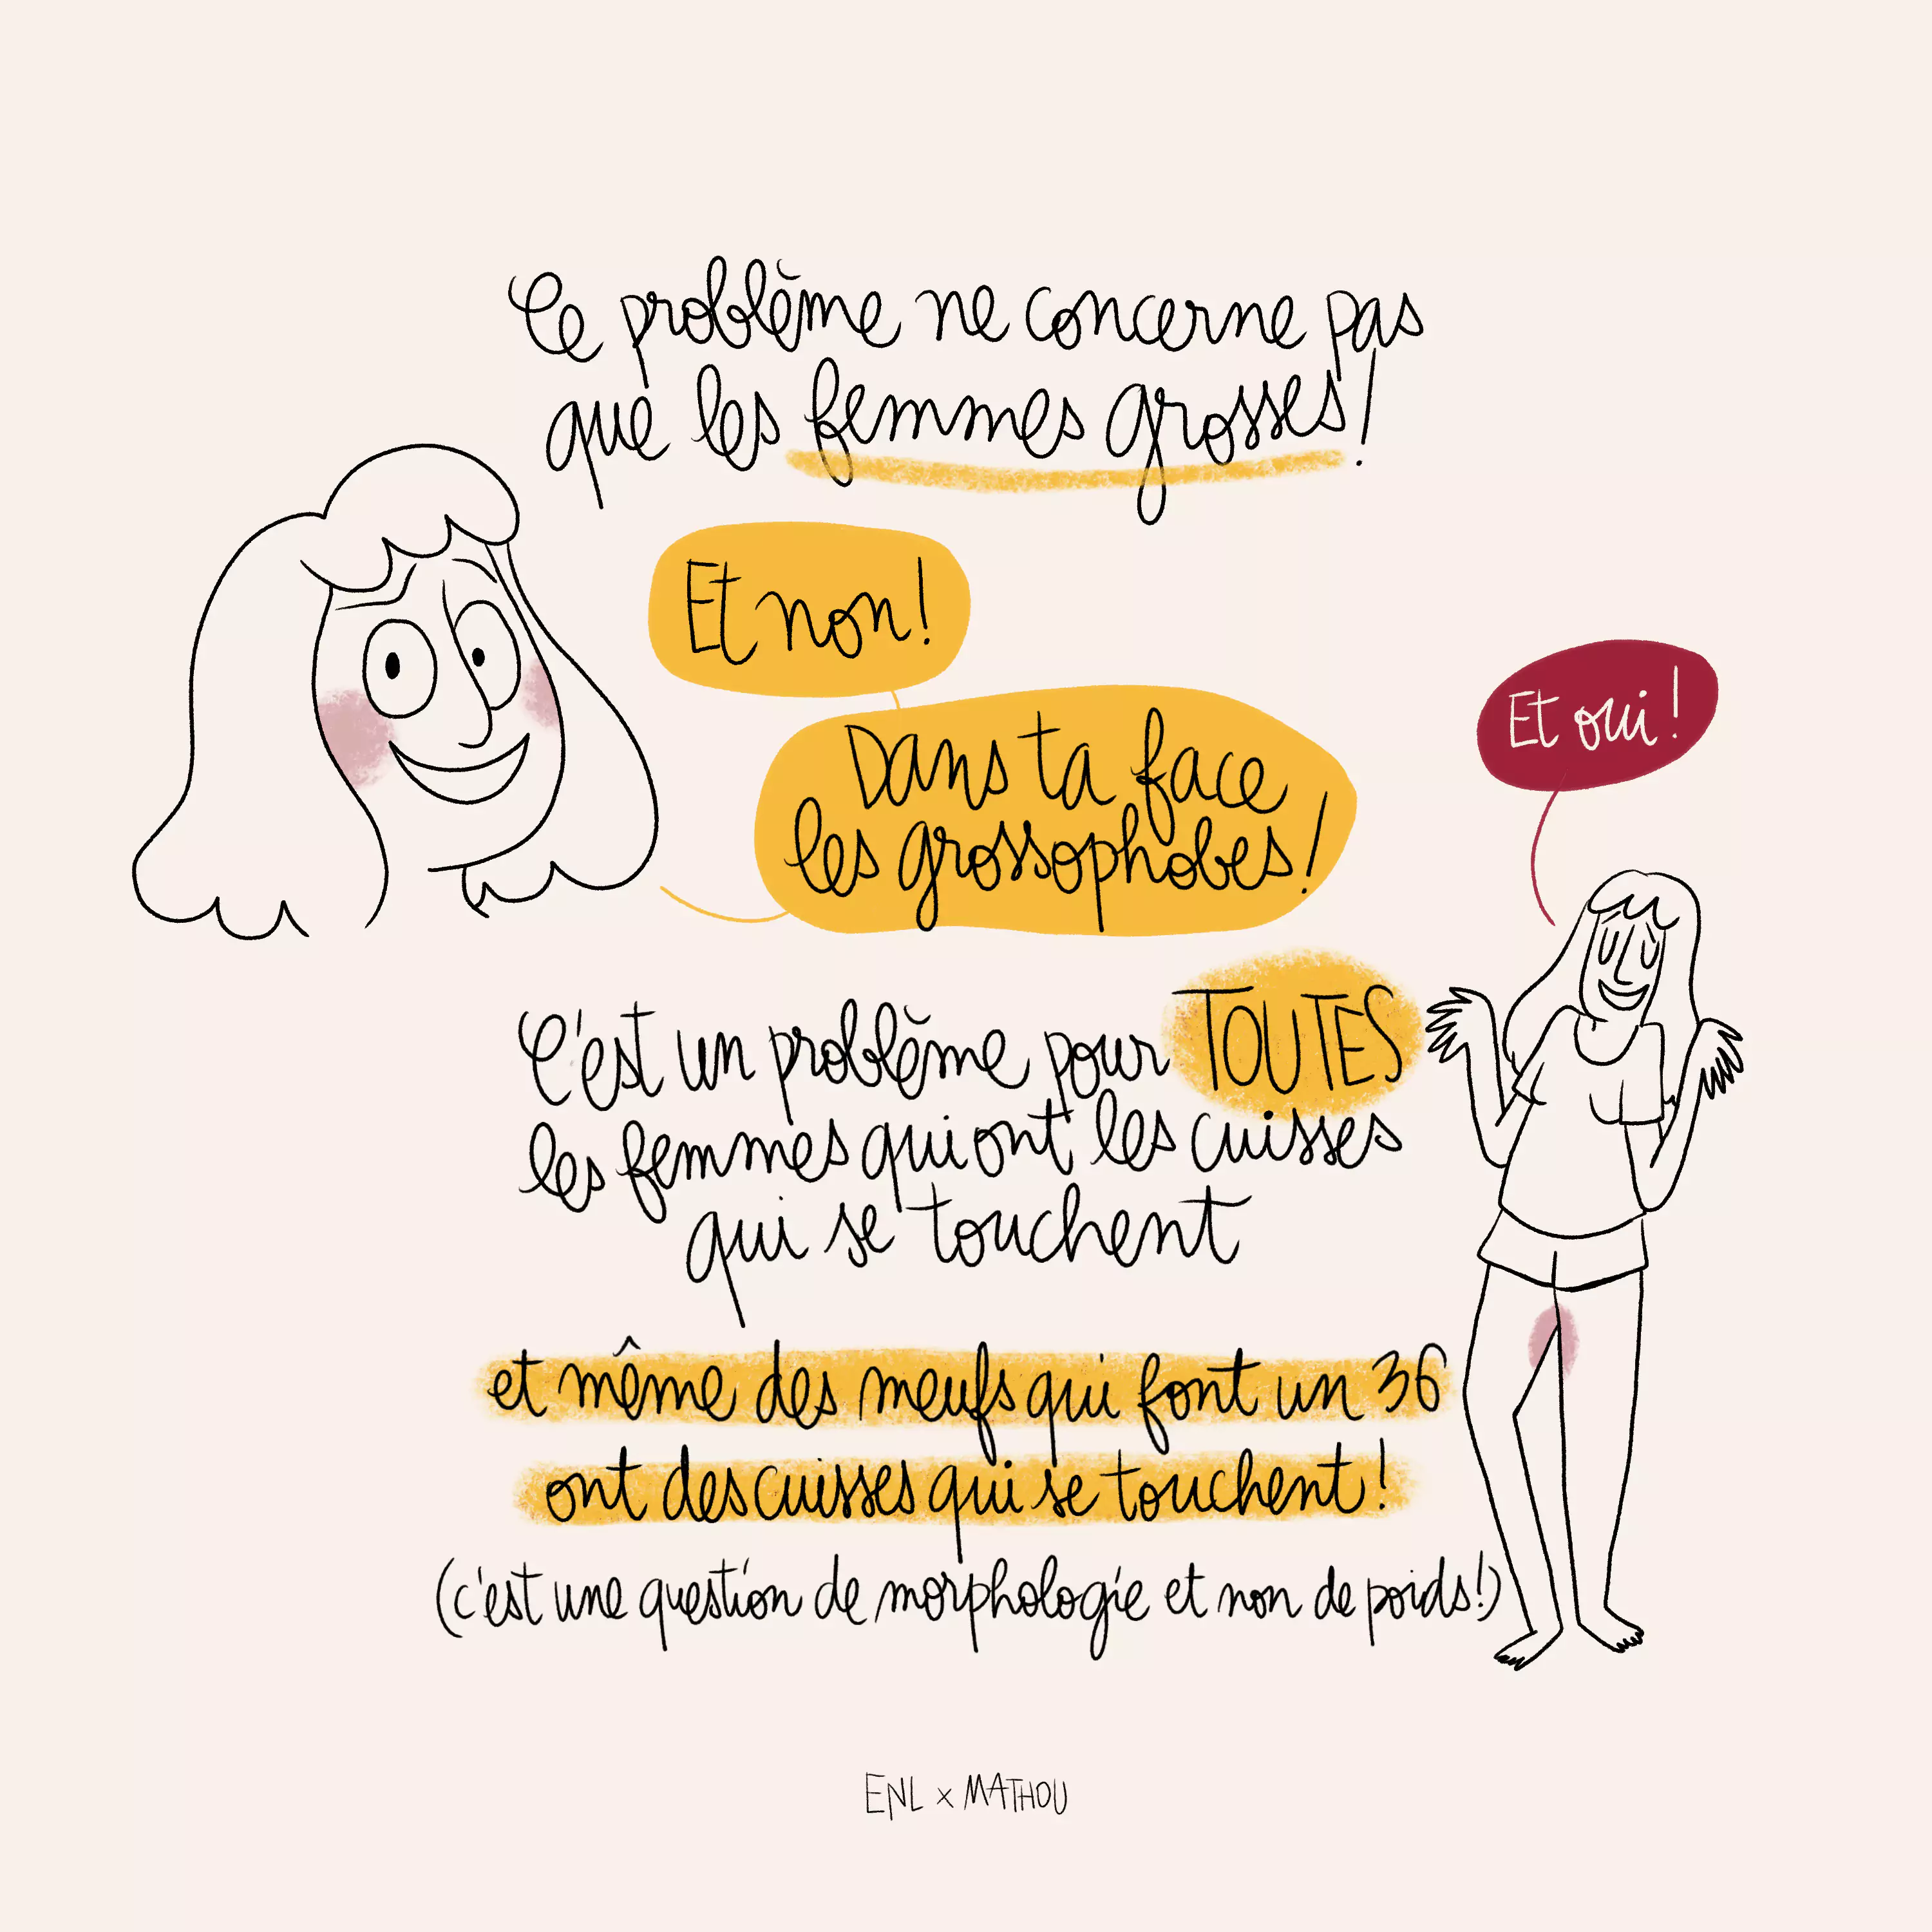 Ce problème ne concerne pas
que les femmes grosses !
Et non !
Dans ta face
les grossophobes !
Et oui !
C'est un problème pour TOUTES
les femmes qui ont les cuisses
qui se touchent
et même des meufs qui font un 36
ont des cuisses qui se touchent !
(c'est une question de morphologie et non de poids !)
ENL x MATHOU